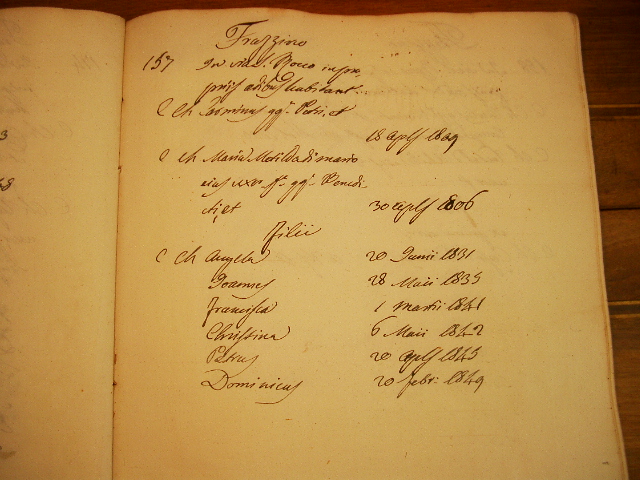 Frazzino
157 In via S. Rocco in pro
priis aedibus habitant
C Ch Carminus qq. Petri, et
18 aplis 1809
C Ch Maria
eius uxor f. qq. Benedi
cti, et 30 aplis 1806
Filii
C Ch Angela 20 Junii 1831
Joannes 28 Maii 1835
Francisca 1 Martii 1841
Christina 6 Maii 1842
Petrus 20 aplis 1845
Dominicus 20 febr: 1849